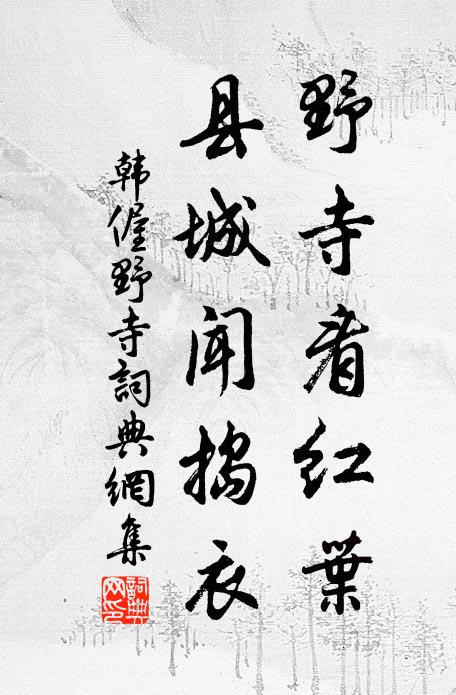 野寺看红葉
县城闻捣衣
韩偓野寺詞典網集